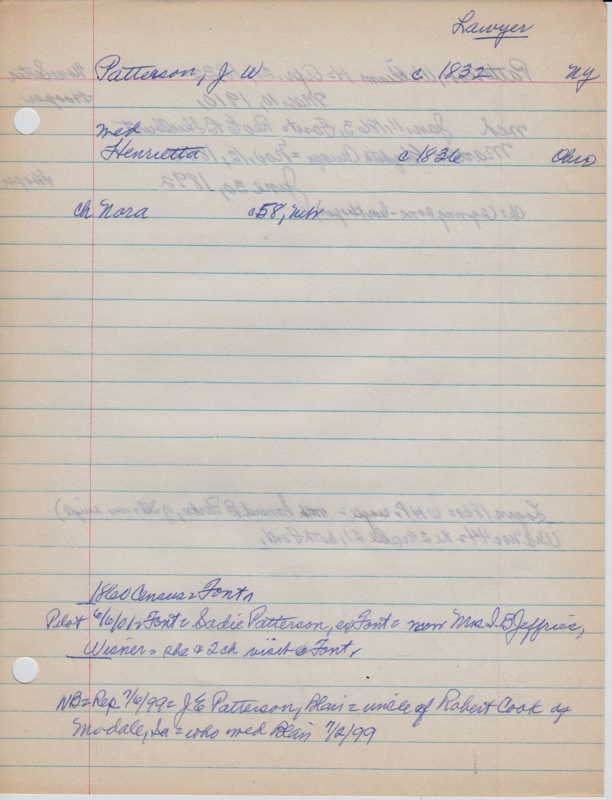 Lawyer
Patterson, J W c 1832 NY
wed
Henrietta c 1836 Ohio
ch Nora c58, Neb
1860 Census = Font,
Pilot 6/6/01 = Font = Sadie Patterson, ex Font = now Mrs I B Jeffries,
Wisner = she & 2ch visit @ Font,
NB = Rep 7/6/99 = J E Patterson, Blair = uncle of Robert Cook of
Modale, Ia = who wed Blair 7/2/99